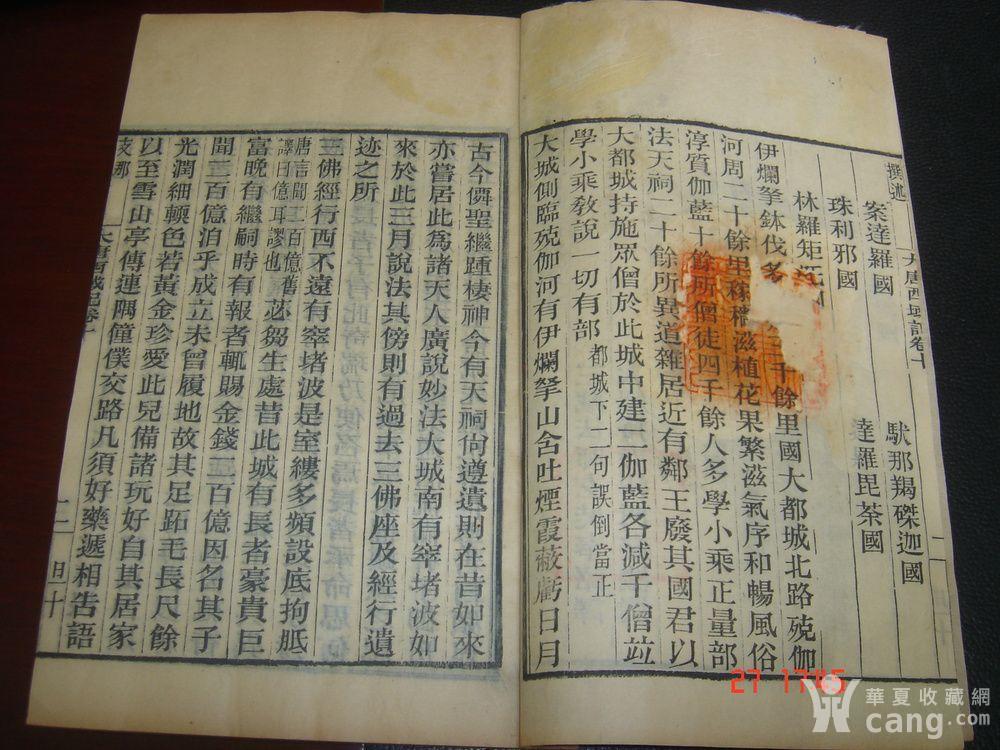 撰述 大唐西域記卷十 一
案達羅國 馱那羯磔迦國
珠利邪國 達羅毘荼國
林羅矩
伊爛拏鉢伐多 三千餘里國大都城北路殑伽
河周二十餘里稼穡滋植花果繁滋氣序和暢風俗
淳質伽藍十餘所僧徒四千餘人多學小乘正量部
法天祠二十餘所異道雜居近有鄰王廢其國君以
大都城持施眾僧於此城中建二伽藍各減千僧竝
學小乘教說一切有部 都城下二句誤倒當正
大城側臨殑伽河有伊爛拏山含吐煙霞蔽虧日月
古今儕聖繼踵棲神今有天祠尙遵遺則在昔如來
亦嘗居此為諸天人廣說妙法大城南有窣堵波如
來於此三月說法其傍則有過去三佛座及經行遺
迹之所
三佛經行西不遠有窣堵波是室縷多頻設底拘胝
唐言聞二百億舊譯曰億耳謬也 苾芻生處昔此城有長者豪貴巨
富晚有繼嗣時有報者輒賜金錢二百億因名其子
聞二百億洎乎成立未曾履地故其足跖毛長尺餘
光潤細輭色若黃金珍愛此兒備諸玩好自其居家
以至雪山亭傳連隅僮僕交路凡須好藥遞相告語
支那 大唐西域記卷十 二 日十
27 17:45
華夏收藏網
cang.com